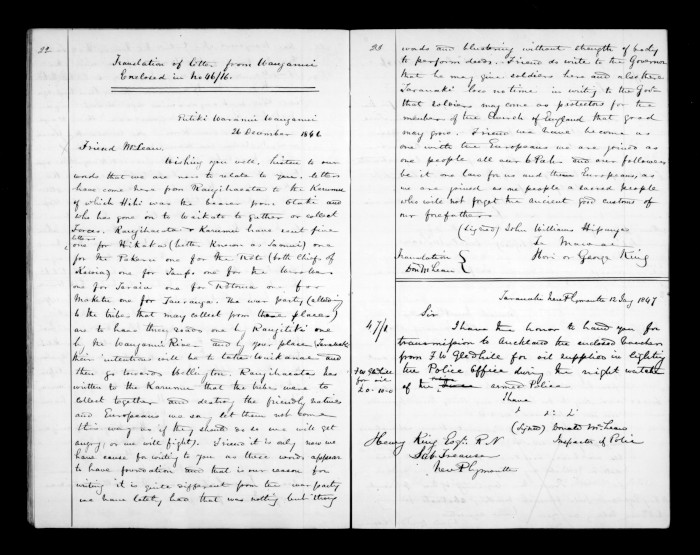 22
Translation of letter from Wanganui
Enclosed in No 46/16.
Putiki Waranui Wanganui
26 December 1846
Friend McLean,
Wishing you well. Listen to our
words that we are now to relate to you. Letters
have come here from Rangihaeata to the Karamu
of which Hihi was the bearer from Otaki and
who has gone on to Waikato to gather or collect
forces. Rangihaeata & Karamu have sent five
letters
one for Hikaka (better known as Tamui) one
for the Pakaru one for the Neti (both Chiefs of
Kawia) one for Taupo one for the
one for Taraia one for Rotorua one for
Maketu one for Tauranga. The war party (alluding
to the tribes that may collect from these places)
are to have three roads one by Rangitiki one
by the Wanganui River and by your place Taranaki
their intentions will be to enter Waikanae and
then go towards Wellington. Rangihaeata has
written to the Karamu that the tribes were to
collect together and destroy the friendly natives
and Europeans we say let them not come
this way as if they should do so we will get
angry, or we will fight). Friend it is only now we
have cause for writing to you as these words appear
to have foundation and that is our reason for
writing it is quite different from the war party
we have lately had that was nothing but strong
23
words and blustering without strength of body
to perform deeds. Friend do write to the Governor
that he may give soldiers here and also there
Taranaki lose no time in writing to the Govr
that soldiers may come as protectors for the
member of the Church of England that good
may grow. Friend we have become as
one with the Europeans we are joined as
one people all our 6 Pahs and our followers
be it one law for us and them Europeans, as
we are joined as one people a sacred people
who will not forget the ancient good customs of
our forefathers
(signed) John Williams Hipango
Te Mawae
Hori or George King
Translation
Don McLean
Taranaki New Plymouth 12 Jany 1847
Sir
47/1
I have the honor to hand you for
transmission to Auckland the enclosed Voucher
from F W Gledhill for oil supplied in lighting
F W Gledhill
for oil
£0.10.0
the Police Office during the night watches
of the armed Police
I have
&c &c &c
(signed) Donald McLean
Inspector of Police
Henry King Esqr. R.N
Sub Treasurer
New Plymouth